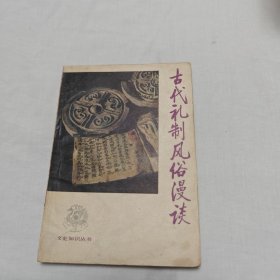 古代礼制风俗漫谈
文史知识丛书